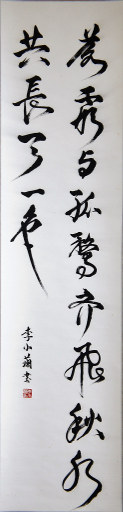 落霞与孤鶩齐飛秋水
共長天一色
李小書